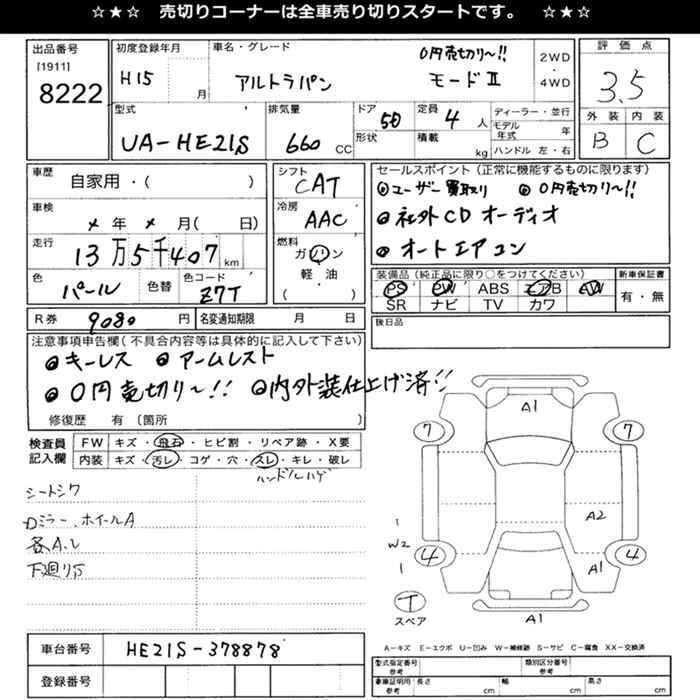 ☆★☆ 売切りコーナーは全車売り切りスタートです。 ☆★☆
出品番号
[1911]
8222
初度登録年月
H15 月
車名・グレード
0円売切り〜!!
アルトラパン モードⅡ
2WD
・
4WD
評価点
3.5
外装 内装
B C
型式
UA-HE21S
排気量
660 CC
ドア
5D
形状
定員
4 人
積載
kg
ディーラー・並行
モデル年式 年
ハンドル 左・右
車歴
自家用・( )
車検
× 年 × 月( 日)
走行
13万5千407 km
色
パール
色替
色コード
Z7T
シフト
CAT
冷房
AAC
燃料
ガソリン
軽油
( )
セールスポイント(正常に機能するものに限ります)
◎ユーザー買取り ◎0円売切り〜!!
◎社外CDオーディオ
◎オートエアコン
装備品(純正品に限り○をつけてください)
PS PW ABS エアB AW
SR ナビ TV カワ
新車保証書
有・無
後日品
R券 9080 円
名変通知期限 月 日
注意事項申告欄(不具合内容等は具体的に記入して下さい)
◎キーレス ◎アームレスト
◎0円売切り〜!! ◎内外装仕上げ済!!
修復歴 有〔箇所 〕
検査員
記入欄
FW キズ・飛石・ヒビ割・リペア跡・X要
内装 キズ・汚レ・コゲ・穴・スレ・キレ・破レ
ハンドルハゲ
シートシワ
Dミラー、ホイールA
各A.し
下廻りS
A1
7 7
A2
W2
4 4
A1
T
スペア
A1
A−キズ E−エクボ U−凹み W−補修跡 S−サビ C−腐食 XX−交換済
車台番号
HE21S-378878
登録番号
型式指定番号
参考
類別区分番号
参考
車庫証明用
参考
長さ cm
幅 cm
高さ cm